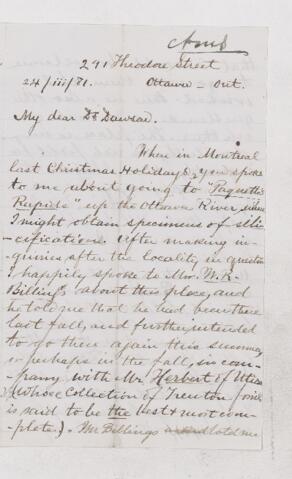 291 Theodore Street
24/iii/81. Ottawa – Ont.
My dear Dr Dawson.
When in Montreal
last Christmas Holidays, you spoke
to me about going to "Paquette
Rapids" up the Ottawa River, when
I might obtain specimens of sili-
cifications. After making in-
quiries after the locality in question
I happily spoke to Mr. W. R.
Billings about this place, and
he told me that he had been there
last fall, and further, intended
to go there again this summer
or perhaps in the fall, in com-
pany with Mr. Herbert of Utica
(whose Collection of Trenton fossils
is said to be the best & most com-
plete.). Mr Billings told me